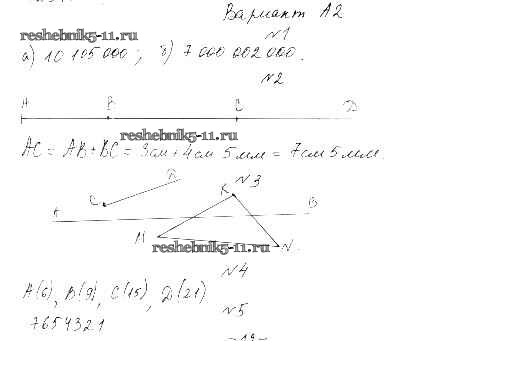 Вариант А2
№1
reshebnik5-11.ru
а) 10 105 000 ; б) 7 000 002 000.
№2
A B C D
reshebnik5-11.ru
AC = AB + BC = 3см + 4см 5мм = 7см 5мм.
№3
C K B
A
M N
reshebnik5-11.ru
№4
A(6), B(9), C(15), D(21)
№5
7654321
~19~